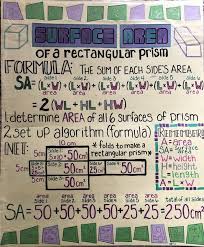 SURFACE AREA
of a rectangular prism
FORMULA: THE SUM OF EACH SIDE'S AREA
side 1 side 2 side 3 side 4 side 5 side 6
SA=(L×W)+(L×W)+(L×W)+(L×W)+(L×W)+(L×W)
area area area area area area
=2(WL+HL+HW)
1. determine AREA of all 6 surfaces of prism
2. set up algorithm (formula)
NET:
10cm
50cm²
* folds to make a
rectangular prism *
5cm
25cm²
50cm²
25cm²
50cm²
REMEMBER
A=area
SA=surface
area
W=width
H=height
L=length
A=L×W
area area area area area area
side 1 side 2 side 3 side 4 side 5 side 6
SA=50+50+50+50+25+25=250cm²